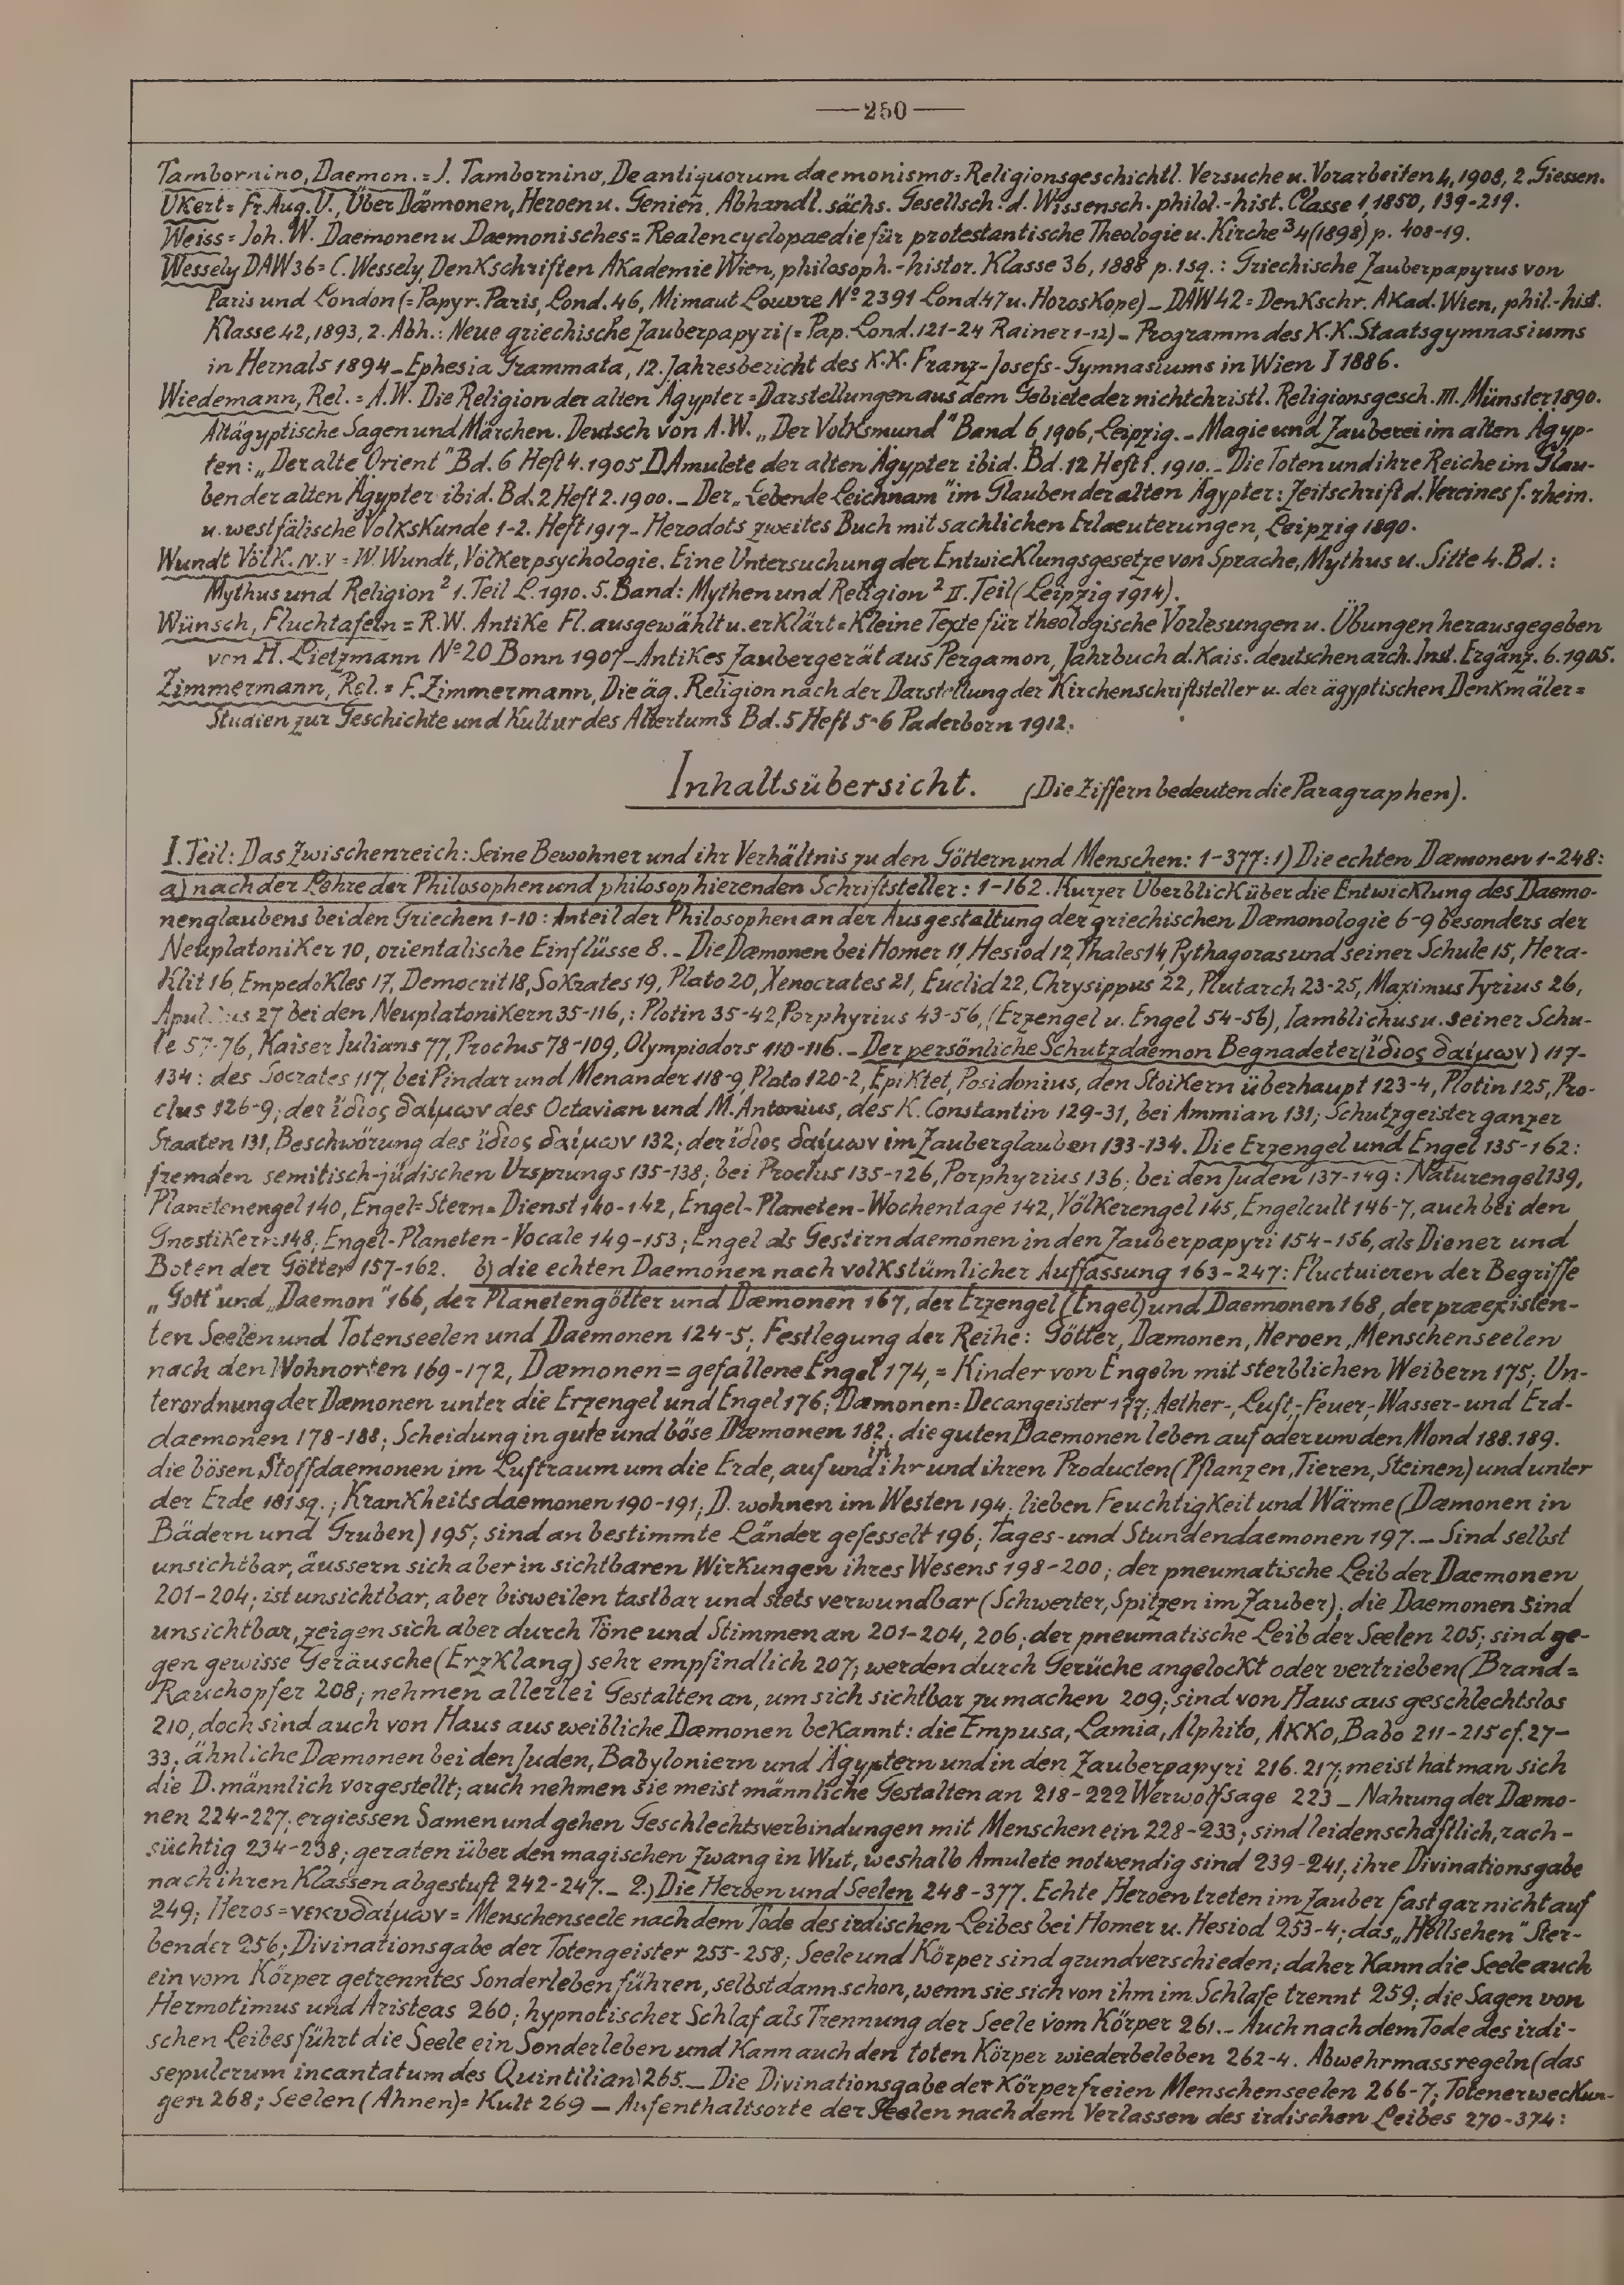 —250—
Tambornino, Daemon. = J. Tambornino, De antiquorum daemonismo = Religionsgeschichtl. Versuche u. Vorarbeiten 4, 1908, 2. Giessen.
Ukert = Fr. Aug. U., Über Dæmonen, Heroen u. Genien. Abhandl. sächs. Gesellsch. d. Wissensch. philol.-hist. Classe 1, 1850, 139-219.
Weiss = Joh. W. Daemonen u Daemonisches = Realencyclopaedie für protestantische Theologie u. Kirche ³ 4 (1898) p. 408-19.
Wessely DAW 36 = C. Wessely, Denkschriften Akademie Wien, philosoph.-histor. Klasse 36, 1888 p. 1 sq. : Griechische Zauberpapyrus von
Paris und London (= Papyr. Paris, Lond. 46, Mimaut Louvre Nº 2391 Lond. 47 u. Horoskope) _ DAW 42 = Denkschr. Akad. Wien, phil.-hist.
Klasse 42, 1893, 2. Abh. : Neue griechische Zauberpapyri (= Pap. Lond. 121-24 Rainer 1-12) - Programm des K.K. Staatsgymnasiums
in Hernals 1894 _ Ephesia Grammata, 12. Jahresbericht des K.K. Franz-Josefs-Gymnasiums in Wien I 1886.
Wiedemann, Rel. = A.W. Die Religion der alten Ägypter = Darstellungen aus dem Gebiete der nichtchristl. Religionsgesch. III. Münster 1890.
Altägyptische Sagen und Märchen. Deutsch von A.W. „Der Volksmund" Band 6, 1906, Leipzig. - Magie und Zauberei im alten Ägyp-
ten : „Der alte Orient" Bd. 6 Heft 4. 1905 D Amulete der alten Ägypter ibid. Bd. 12 Heft 1. 1910. - Die Toten und ihre Reiche im Glau-
ben der alten Ägypter ibid. Bd. 2 Heft 2. 1900. _ Der „Lebende Leichnam" im Glauben der alten Ägypter : Zeitschrift d. Vereines f. rhein.
u. westfälische Volkskunde 1-2. Heft 1917 - Herodots zweites Buch mit sachlichen Erlaeuterungen, Leipzig 1890.
Wundt Völk. IV. V = W. Wundt, Völkerpsychologie. Eine Untersuchung der Entwicklungsgesetze von Sprache, Mythus u. Sitte 4. Bd. :
Mythus und Religion ² 1. Teil L. 1910. 5. Band : Mythen und Religion ² II. Teil (Leipzig 1914).
Wünsch, Fluchtafeln = R.W. Antike Fl. ausgewählt u. erklärt = Kleine Texte für theologische Vorlesungen u. Übungen herausgegeben
von H. Lietzmann Nº 20 Bonn 1907 _ Antikes Zaubergerät aus Pergamon, Jahrbuch d. Kais. deutschen arch. Inst. Ergänz. 6. 1905.
Zimmermann, Rel. = F. Zimmermann, Die äg. Religion nach der Darstellung der Kirchenschriftsteller u. der ägyptischen Denkmäler =
Studien zur Geschichte und Kultur des Altertums Bd. 5 Heft 5-6 Paderborn 1912.
Inhaltsübersicht. (Die Ziffern bedeuten die Paragraphen).
I. Teil : Das Zwischenreich : Seine Bewohner und ihr Verhältnis zu den Göttern und Menschen : 1-377 : 1) Die echten Dæmonen 1-248 :
a) nach der Lehre der Philosophen und philosophierenden Schriftsteller : 1-162. Kurzer Überblick über die Entwicklung des Daemo-
nenglaubens bei den Griechen 1-10 : Anteil der Philosophen an der Ausgestaltung der griechischen Dæmonologie 6-9 besonders der
Neuplatoniker 10, orientalische Einflüsse 8. - Die Dæmonen bei Homer 11, Hesiod 12, Thales 14, Pythagoras und seiner Schule 15, Hera-
klit 16, Empedokles 17, Democrit 18, Sokrates 19, Plato 20, Xenocrates 21, Euclid 22, Chrysippus 22, Plutarch 23-25, Maximus Tyrius 26,
Apuleius 27 bei den Neuplatonikern 35-116, : Plotin 35-42, Porphyrius 43-56, (Erzengel u. Engel 54-56), Iamblichus u. seiner Schu-
le 57-76, Kaiser Iulians 77, Proclus 78-109, Olympiodors 110-116. - Der persönliche Schutzdaemon Begnadeter (ἴδιος δαίμων) 117-
134 : des Socrates 117, bei Pindar und Menander 118-9, Plato 120-2, Epiktet, Posidonius, den Stoikern überhaupt 123-4, Plotin 125, Pro-
clus 126-9 ; der ἴδιος δαίμων des Octavian und M. Antonius, des K. Constantin 129-31, bei Ammian 131 ; Schutzgeister ganzer
Staaten 131, Beschwörung des ἴδιος δαίμων 132 ; der ἴδιος δαίμων im Zauberglauben 133-134. Die Erzengel und Engel 135-162 :
fremden semitisch-jüdischen Ursprungs 135-138 ; bei Proclus 135-126, Porphyrius 136 ; bei den Juden 137-149 : Naturengel 139,
Planetenengel 140, Engel = Stern = Dienst 140-142, Engel-Planeten-Wochentage 142, Völkerengel 145, Engelcult 146-7, auch bei den
Gnostikern 148 ; Engel-Planeten-Vocale 149-153 ; Engel als Gestirndaemonen in den Zauberpapyri 154-156, als Diener und
Boten der Götter 157-162. b) die echten Daemonen nach volkstümlicher Auffassung 163-247 : Fluctuieren der Begriffe
„Gott" und „Daemon" 166, der Planetengötter und Dæmonen 167, der Erzengel (Engel) und Daemonen 168, der præexisten-
ten Seelen und Totenseelen und Daemonen 124-5 ; Festlegung der Reihe : Götter, Dæmonen, Heroen, Menschenseelen
nach den Wohnorten 169-172, Dæmonen = gefallene Engel 174, = Kinder von Engeln mit sterblichen Weibern 175 ; Un-
terordnung der Dæmonen unter die Erzengel und Engel 176 ; Dæmonen = Decangeister 177 ; Aether-, Luft-, Feuer-, Wasser- und Erd-
daemonen 178-188 ; Scheidung in gute und böse Dæmonen 182 ; die guten Daemonen leben auf oder um den Mond 188. 189.
die bösen Stoffdaemonen im Luftraum um die Erde, auf und in ihr und ihren Producten (Pflanzen, Tieren, Steinen) und unter
der Erde 181 sq. ; Krankheitsdaemonen 190-191 ; D. wohnen im Westen 194 ; lieben Feuchtigkeit und Wärme (Dæmonen in
Bädern und Gruben) 195 ; sind an bestimmte Länder gefesselt 196 ; Tages- und Stundendaemonen 197. - Sind selbst
unsichtbar, äussern sich aber in sichtbaren Wirkungen ihres Wesens 198-200 ; der pneumatische Leib der Daemonen
201-204 ; ist unsichtbar, aber bisweilen tastbar und stets verwundbar (Schwerter, Spitzen im Zauber) ; die Daemonen sind
unsichtbar, zeigen sich aber durch Töne und Stimmen an 201-204, 206 ; der pneumatische Leib der Seelen 205 ; sind ge-
gen gewisse Geräusche (Erzklang) sehr empfindlich 207 ; werden durch Gerüche angelockt oder vertrieben (Brand =
Rauchopfer 208 ; nehmen allerlei Gestalten an, um sich sichtbar zu machen 209 ; sind von Haus aus geschlechtslos
210, doch sind auch von Haus aus weibliche Dæmonen bekannt : die Empusa, Lamia, Alphito, Akko, Babo 211-215 cf. 27-
33 ; ähnliche Dæmonen bei den Juden, Babyloniern und Ägyptern und in den Zauberpapyri 216. 217 ; meist hat man sich
die D. männlich vorgestellt ; auch nehmen sie meist männliche Gestalten an 218-222 Werwolfsage 223 _ Nahrung der Dæmo-
nen 224-227 ; ergiessen Samen und gehen Geschlechtsverbindungen mit Menschen ein 228-233 ; sind leidenschaftlich, rach-
süchtig 234-238 ; geraten über den magischen Zwang in Wut, weshalb Amulete notwendig sind 239-241, ihre Divinationsgabe
nach ihren Klassen abgestuft 242-247. _ 2.) Die Heroen und Seelen 248-377. Echte Heroen treten im Zauber fast gar nicht auf
249 ; Heros = νεκυδαίμων = Menschenseele nach dem Tode des irdischen Leibes bei Homer u. Hesiod 253-4 ; das „Hellsehen" Ster-
bender 256 ; Divinationsgabe der Totengeister 255-258 ; Seele und Körper sind grundverschieden ; daher kann die Seele auch
ein vom Körper getrenntes Sonderleben führen, selbst dann schon, wenn sie sich von ihm im Schlafe trennt 259 ; die Sagen von
Hermotimus und Aristeas 260 ; hypnotischer Schlaf als Trennung der Seele vom Körper 261. - Auch nach dem Tode des irdi-
schen Leibes führt die Seele ein Sonderleben und kann auch den toten Körper wiederbeleben 262-4. Abwehrmassregeln (das
sepulcrum incantatum des Quintilian) 265. _ Die Divinationsgabe der körperfreien Menschenseelen 266-7 ; Totenerweckun-
gen 268 ; Seelen (Ahnen) = Kult 269 _ Aufenthaltsorte der Seelen nach dem Verlassen des irdischen Leibes 270-374 :